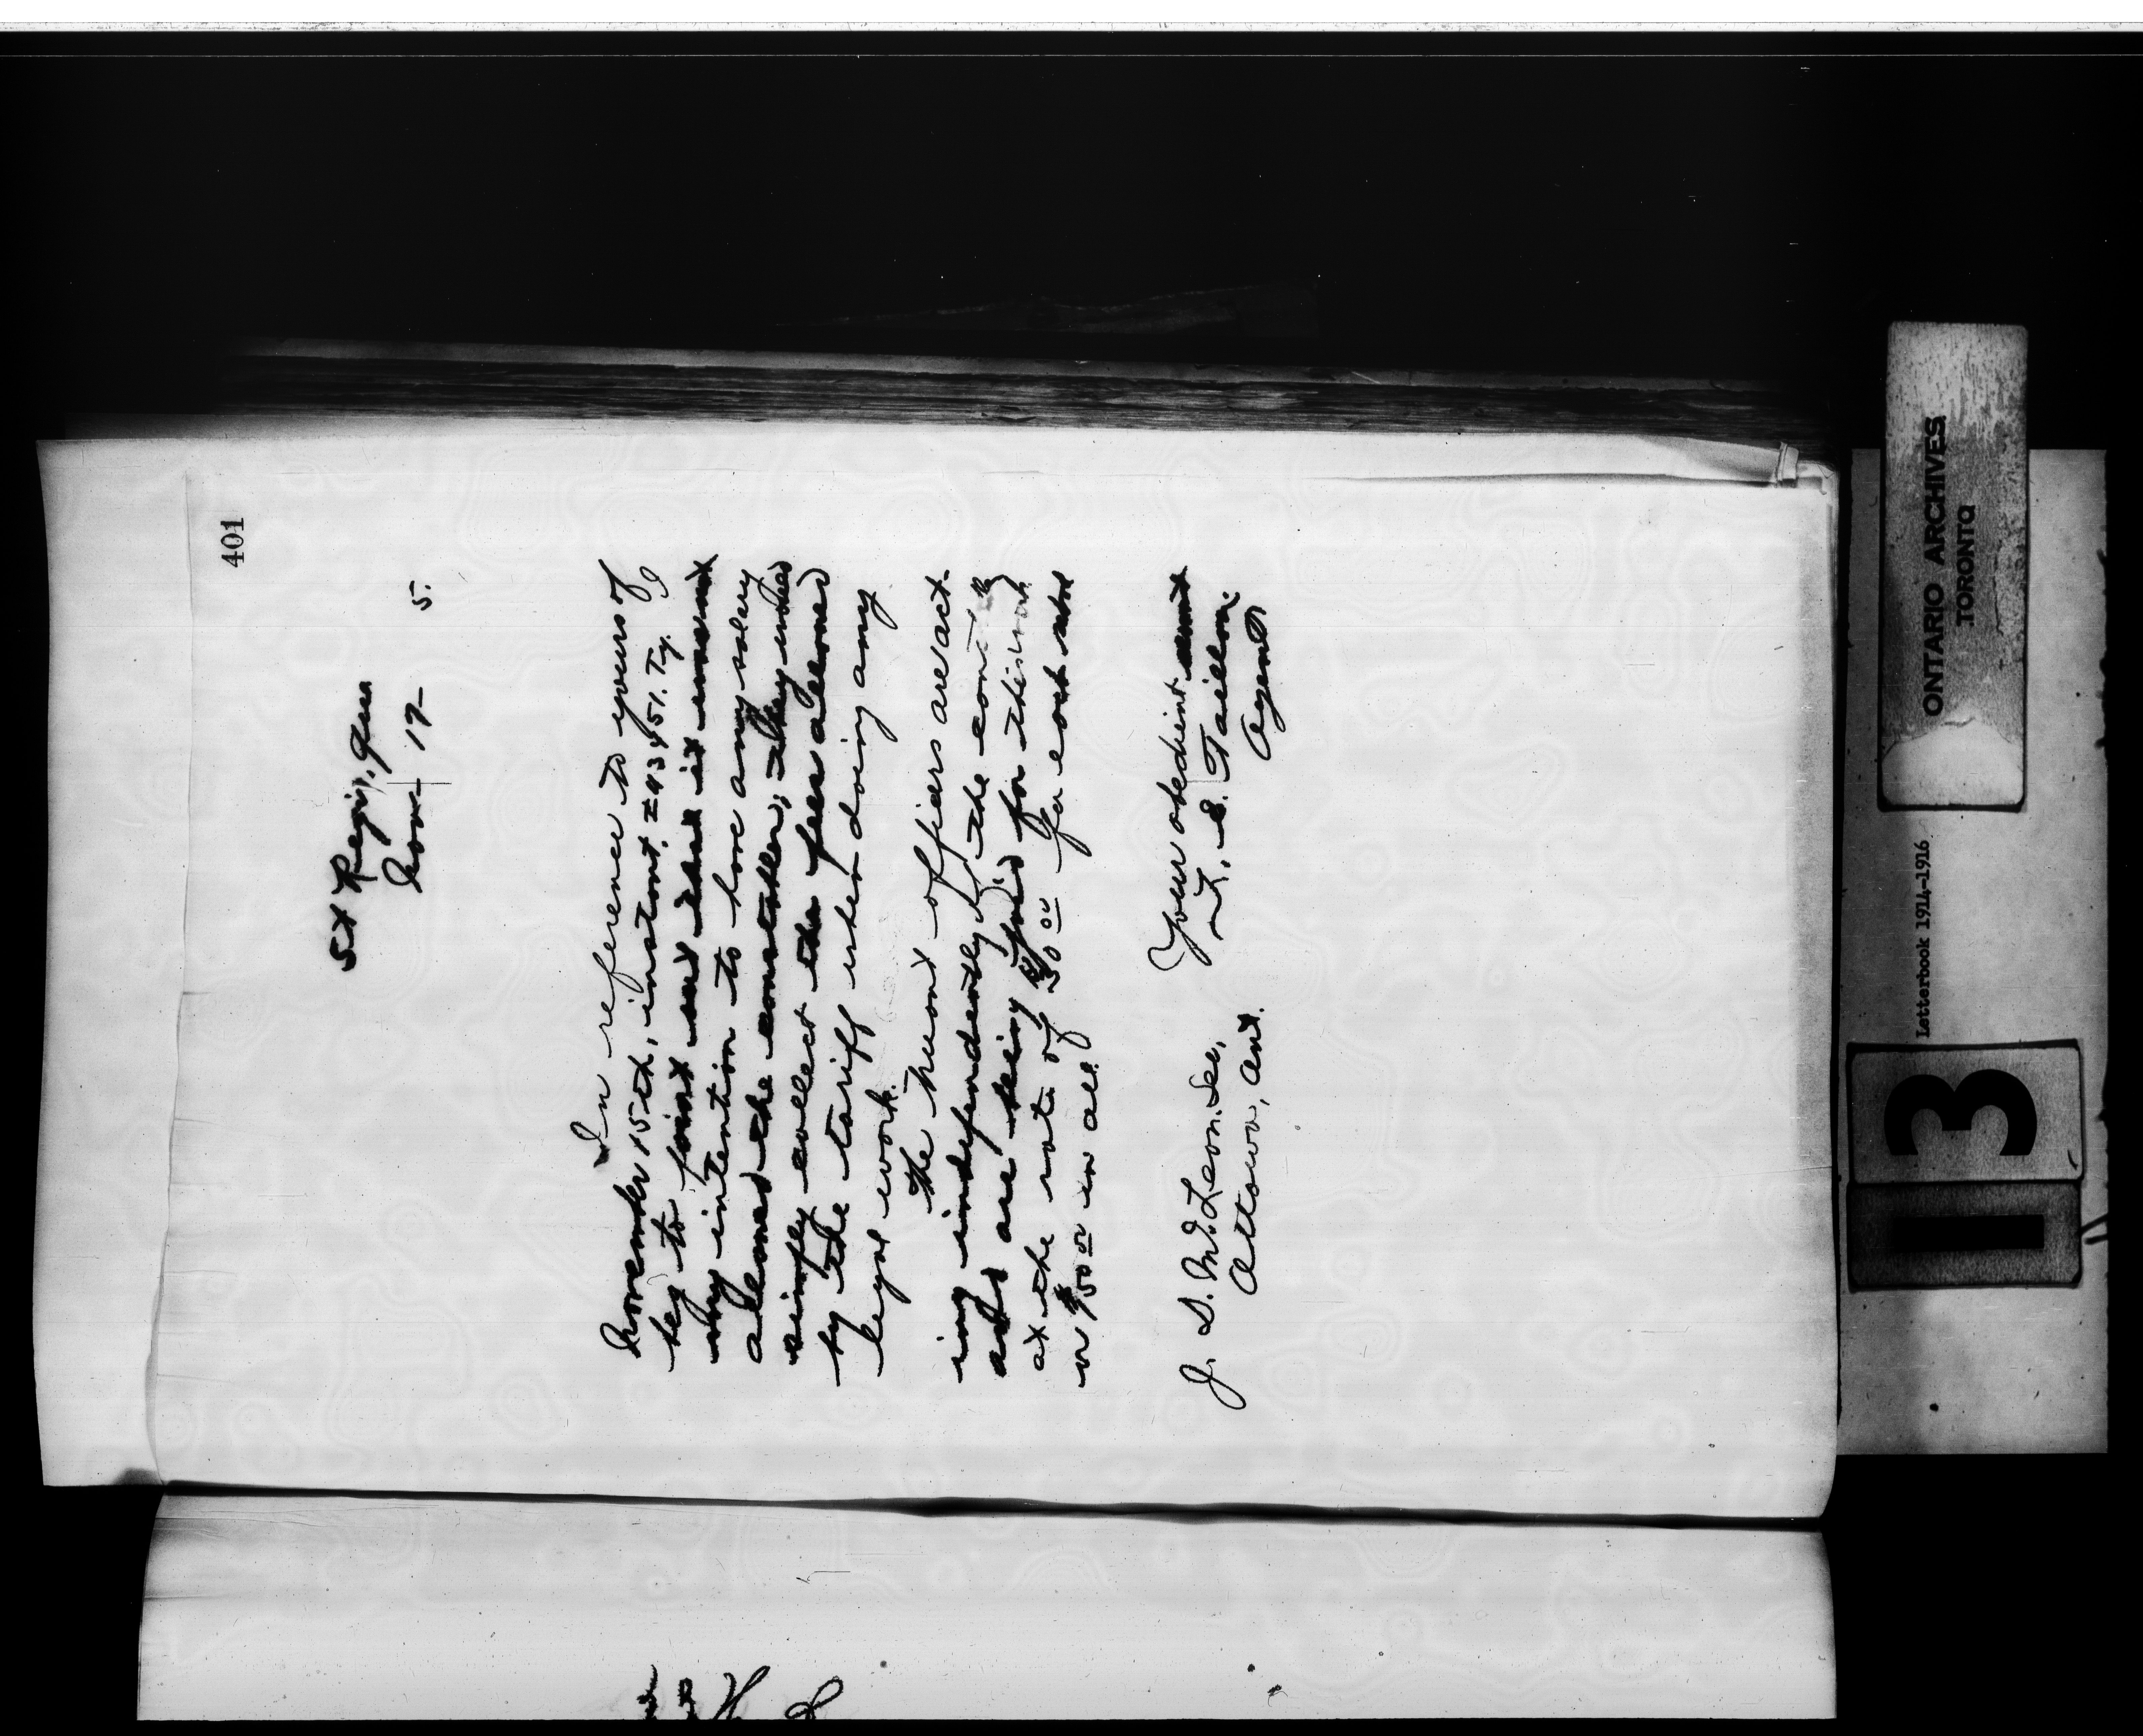 401
St Regis, Que
Nov – 19 – 5.
In reference to yours of
November 15th, instant, # 43451. Ty. I
beg to point out that it was not
my intention to have any salary
allowed the constables; they would
simply collect the fees allowed
by the tariff when doing any
legal work.
The truant officers are act-
ing independently of the
and are being paid for this work
at the rate of $50 00 for each
or $150 00 in all.
Your obedient
Taillon,
Agent
J. D. McLean. Sec,
Ottawa, Ont.
ONTARIO ARCHIVES
TORONTO
Letterbook 1914-1916
13